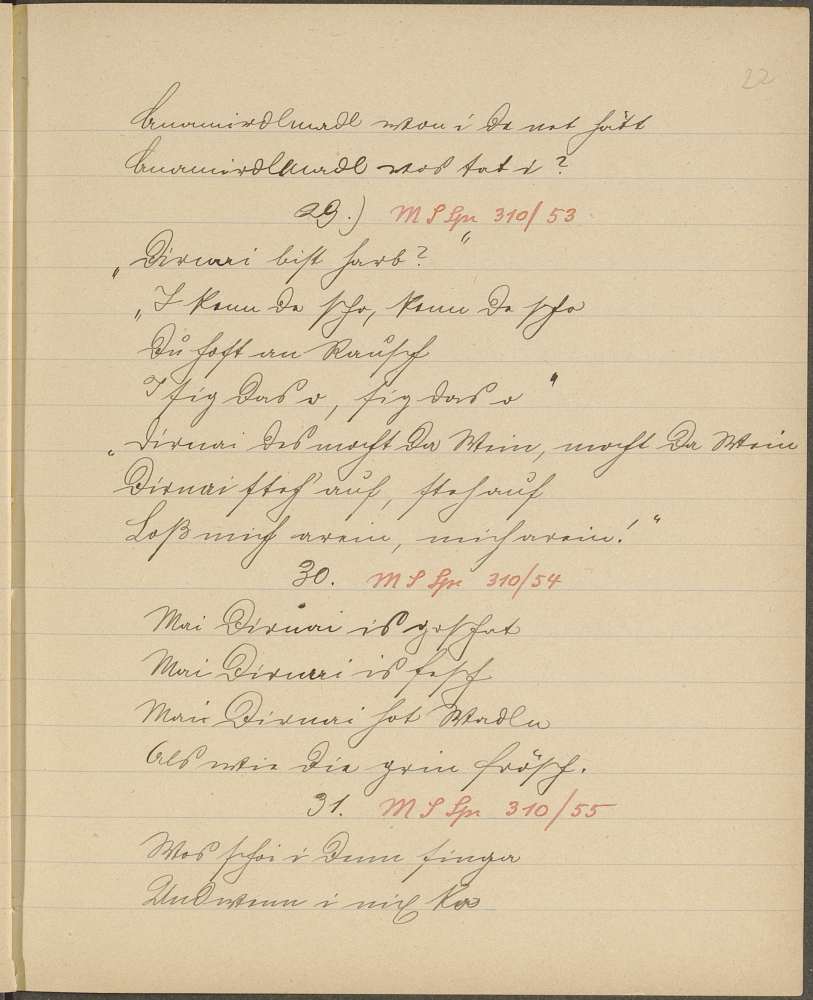 22
Anamirdlmadl won i de net hätt
Anamirdlmadl wos tat i?
29.) M S Spr 310/53
„Dirnai bist harb?"
„I kenn de scho, kenn de scho
Du host an Rausch
I sig das o, sig das o"
„Dirnai des mocht da Wein, mocht da Wein
Dirnai steh' auf, steh auf
Loß mich arein, mich arein!"
30. M S Spr 310/54
Mai Dirnai is gschat
Mai Dirnai is fesch
Mai Dirnai hot Wadln
Als wie die grin Frösch.
31. M S Spr 310/55
Wos schoi i denn singa
Und wenn i nix ko